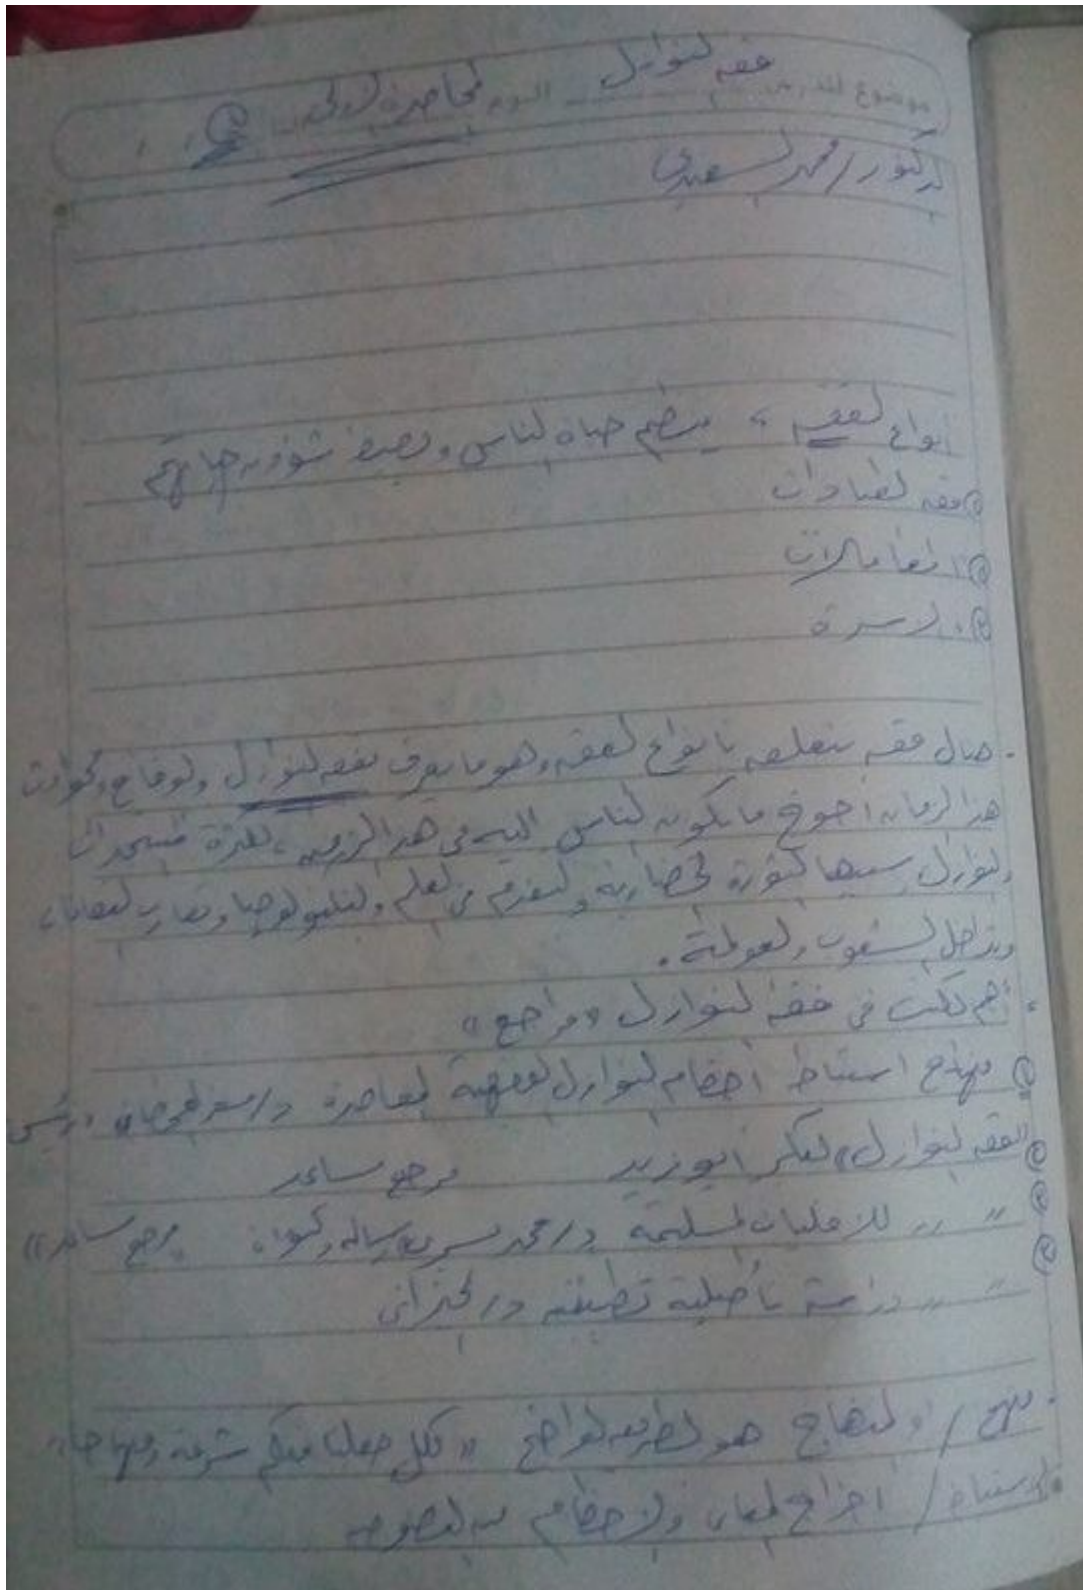 موضوع الدرس فقه النوازل اليوم المحاضرة الأولى
الدكتور / محمد السعيدي
أنواع الفقه ، ينظم حياة الناس و شؤون حياتهم
① فقه العبادات
② المعاملات
③ الاسرة
. هناك فقه يتعلق بأنواع الفقه وهو ما يعرف بفقه النوازل والوقائع والحوادث
هذا الزمان أحوج ما يكون الناس اليه في هذا الزمن ، لكثرة المستجدات
والنوازل سببها الثورة الحضارية والتقدم في العلم والتكنولوجيا وتقارب ،
وتداخل الشعوب والعولمة .
، أهم الكتب في فقه النوازل "مراجع"
① منهج استنباط أحكام النوازل الفقهية المعاصرة د/ مسفر القحطاني رئيسي
② فقه النوازل لبكر ابو زيد مرجع مساعد
③ " " للأقليات المسلمة د/ محمد يسري رسالة دكتوراه مرجع مساعد"
④ " " دراسة تأصيلية تطبيقية د/ الجيزاني
. منهج / او المنهاج هو الطريق الواضح "لكل جعلنا منكم شرعة ومنهاجا"
. الاستنباط / اخراج المعاني والاحكام من النصوص